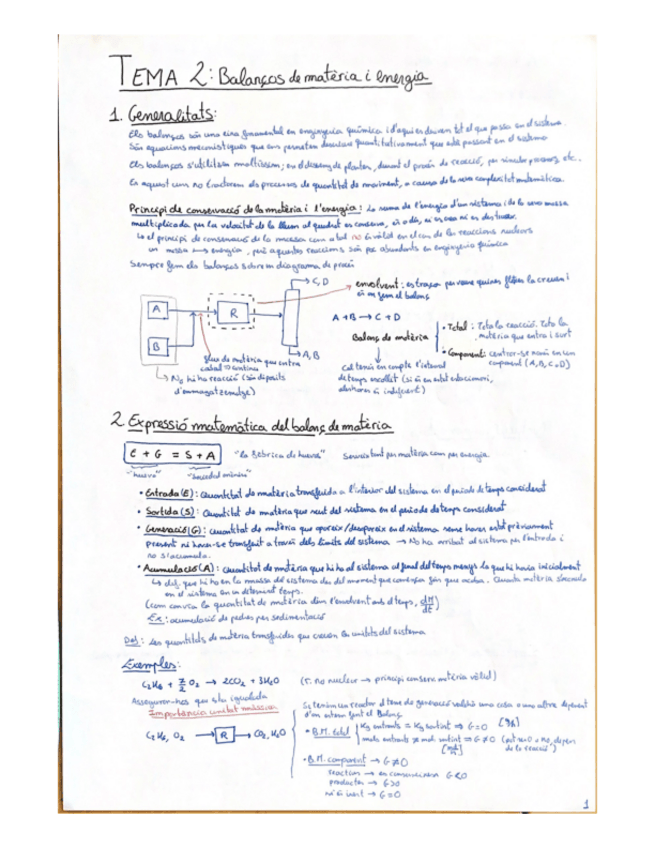 TEMA 2: Balanços de matèria i energia
1. Generalitats:
Els balanços són una eina fonamental en enginyeria química i d'aquí deriven tot el que passa en el sistema.
Són equacions mecanístiques que ens permeten descriure quantitativament que està passant en el sistema
Els balanços s'utilitzen moltíssim; en el disseny de plantes, durant el procés de reacció, per simular processos, etc.
En aquest curs no tractarem els processos de quantitat de moviment, a causa de la seva complexitat matemàtica.
Principi de conservació de la matèria i l'energia: La suma de l'energia d'un sistema i de la seva massa
multiplicada per la velocitat de la llum al quadrat es conserva, és a dir, ni es crea ni es destrueix.
↳ el principi de conservació de la massa com a tal no és vàlid en el cas de les reaccions nuclears
on massa energia, però aquestes reaccions són poc abundants en enginyeria química
Sempre fem els balanços sobre un diagrama de procés
C, D
envolvent: es traça per veure quines fletxes la creuen i
així fem el balanç
A
R
B
A + B → C + D
Balanç de matèria
• Total: Tota la reacció. Tota la
matèria que entra i surt
• Component: centrar-se només en un
component (A, B, C o D)
A, B
flux de matèria que entra
cabal → continu
→ No hi ha reacció (són dipòsits
d'emmagatzematge)
Cal tenir en compte l'interval
de temps escollit (si és en estat estacionari,
aleshores és indiferent)
2. Expressió matemàtica del balanç de matèria
E + G = S + A
"la fàbrica de huevos"
Serveix tant per matèria com per energia
"huevo"
"Sociedad anónima"
• Entrada (E): Quantitat de matèria transferida a l'interior del sistema en el període de temps considerat
• Sortida (S): Quantitat de matèria que surt del sistema en el període de temps considerat
• Generació (G): quantitat de matèria que apareix/desapareix en el sistema sense haver estat prèviament
present ni haver-se transferit a través dels límits del sistema → No ha arribat al sistema per l'entrada i
no s'acumula.
• Acumulació (A): Quantitat de matèria que hi ha al sistema al final del temps menys la que hi havia inicialment
en el sistema en un determinat temps.
(com canvia la quantitat de matèria dins l'envolvent amb el temps, dM/dt)
Ex: acumulació de pedres per sedimentació
Def: Les quantitats de matèria transferides que creuen els límits del sistema
Exemples:
C₂H₆ + 7/2 O₂ → 2CO₂ + 3H₂O
(r. no nuclear → principi conserv. matèria vàlid)
Assegurar-nos que sta igualada
Importància unitat màssica
C₂H₆, O₂ → R → CO₂, H₂O
Si tenim un reactor el terme de generació valdrà una cosa o una altra depenent
d'on estem fent el balanç
• B.M. total
kg entrants = kg sortint ⇒ G=0
mols entrants ≠ mol sortint ⇒ G≠0 (pot ser 0 o no, depèn
de la reacció)
• B.M. component → G≠0
reactiu → es consumeix G<0
producte → G>0
ni és inert → G=0
1